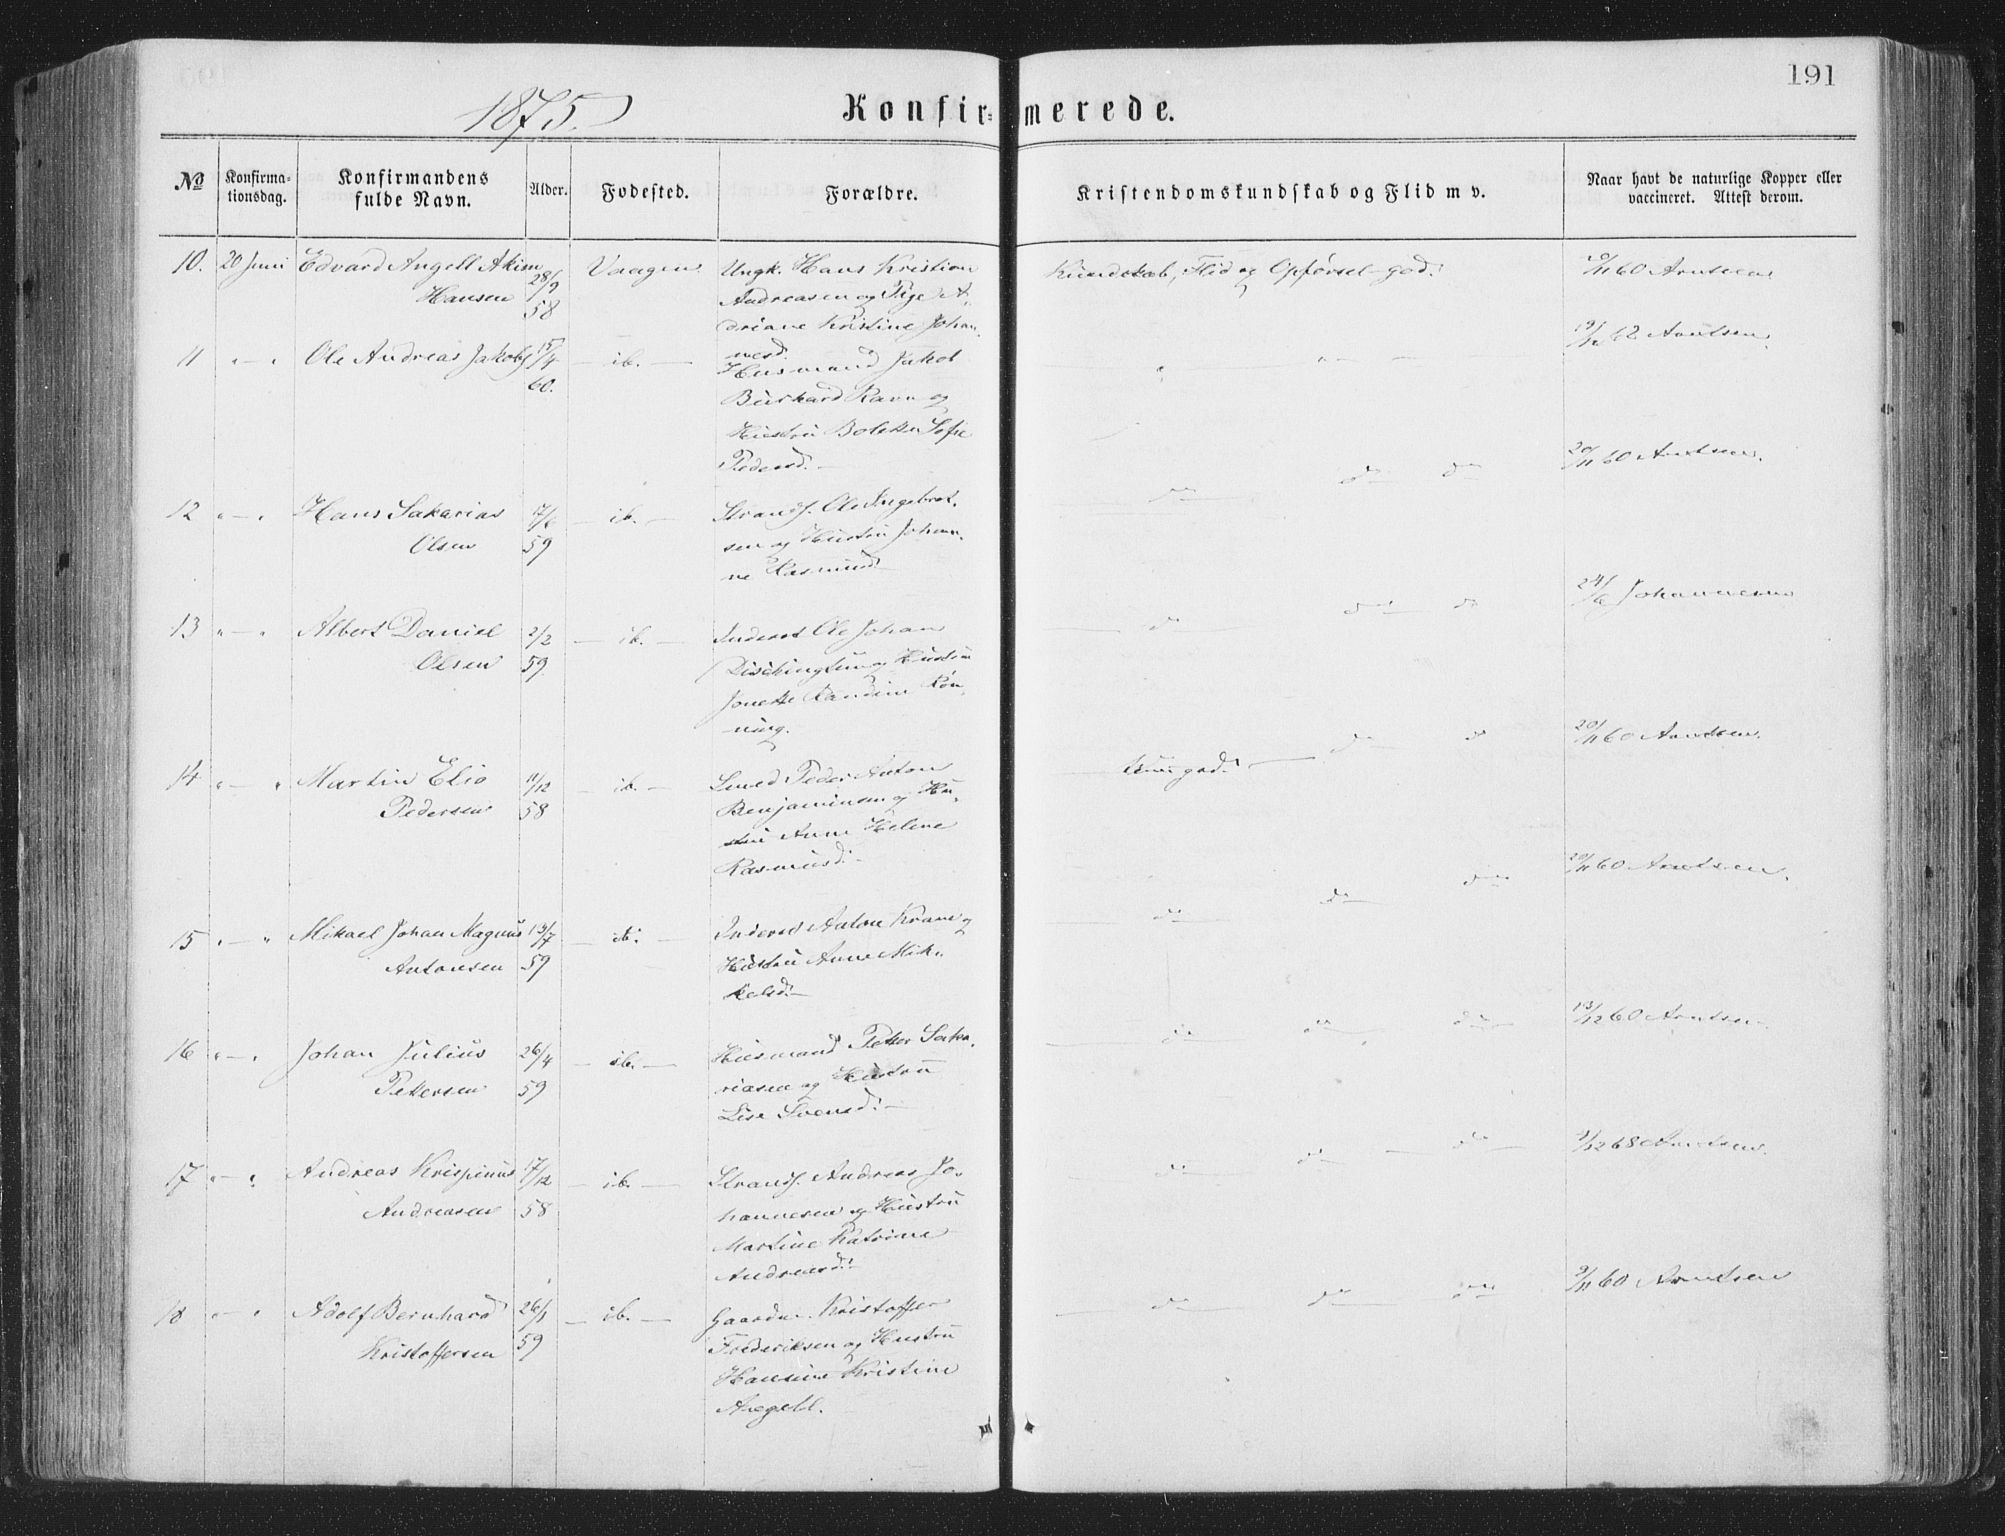 191
1875.
Konfirmerede.
№ Konfirmationsdag. Konfirmandens fulde Navn. Alder. Fodested. Forældre. Kristendomskundskab og Flid m v. Naar havt de naturlige Kopper eller vaccineret. Attest derom.
10. 20 Juni Edvard Angell Akim Vaagen Ungk. Hans Kristian Kundskab, Flid og Opførsel god. 60 Arntsen
Hansen 28/9 Andreasen og Pige A-
58 driane Kristine Johan-
nesd.
11 " — " Ole Andreas Jakobs 15/4 — ib. — Husmand Jakob 19/12 62 Arntsen
60. Burchard Ravn og
Hustru Bolette Sofie
Pedersd.
12 " — " Hans Sakarias 17/6 — ib. — Strands. Ole Ingebret- do do do 20/11 60 Arntsen.
Olsen 59 sen og Hustru Johan-
ne Rasmusd.
13 " — " Albert Daniel 2/2 — ib. — Inderst Ole Johan do do do 24/6 Johannesen
Olsen 59 og Hustru
Jonette Røn-
ning.
14 " — " Martin Elio 11/12 — ib. — Smed Peder Anton god. do do 20/11 60 Arntsen.
Pedersen 58 Benjaminsen og Hu-
stru Anne Helene
Rasmusd.
15 " — " Mikael Johan Magnus 13/7 — ib. — Inderst Anton Krane og do do do 20/11 60 Arntsen.
Antonsen 59 Hustru Anne Mik-
kelsd.
16 " — " Johan Julius 26/4 — ib. — Husmand Petter Saka- do do do 13/12 60 Arntsen
Pettersen 59 riasen og Hustru
Lise Svensd.
17 " — " Andreas Krispinus 17/12 — ib. — Strands. Andreas Jo- do do do 68 Arntsen.
Andreasen 58 hannesen og Hustru
Martine Katrine
Andreasd.
18 " — " Adolf Bernhard 26/1 — ib. — Gaardm. Kristoffer do do do 9/11 60 Arntsen
Kristoffersen 59 Frederiksen og Hustru
Hansine Kristine
Angell.